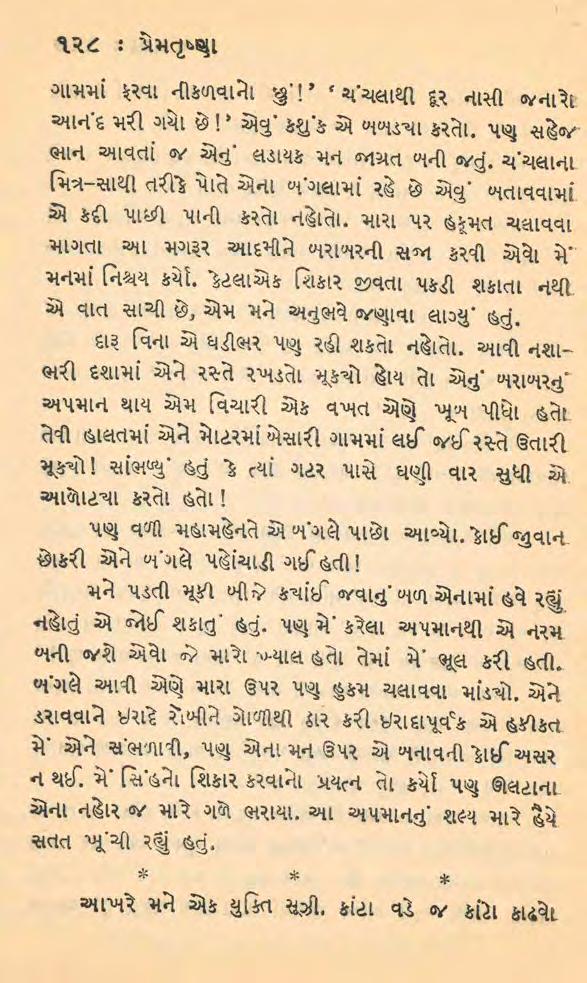 ૧૨૮ : પ્રેમતૃષ્ણા
ગામમાં ફરવા નીકળવાનો છું!’ ‘ચંચલાથી દૂર નાસી જનારો
આનંદ મરી ગયો છે!’ એવું કશુંક એ બબડ્યા કરતો. પણ સહેજ
ભાન આવતાં જ એનું લડાયક મન જાગ્રત બની જતું. ચંચલાના
મિત્ર-સાથી તરીકે પોતે એના બંગલામાં રહે છે એવું બતાવવામાં
એ કદી પાછી પાની કરતો નહોતો. મારા પર હકૂમત ચલાવવા
માગતા આ મગરૂર આદમીને બરાબરની સજા કરવી એવો મેં
મનમાં નિશ્ચય કર્યો. કેટલાએક શિકાર જીવતા પકડી શકાતા નથી
એ વાત સાચી છે, એમ મને અનુભવે જણાવા લાગ્યું હતું.
દારૂ વિના એ ઘડીભર પણ રહી શકતો નહોતો. આવી નશા-
ભરી દશામાં એને રસ્તે રખડતો મૂક્યો હોય તો એનું બરાબરનું
અપમાન થાય એમ વિચારી એક વખત એણે ખૂબ પીધો હતો
તેવી હાલતમાં એને મોટરમાં બેસારી ગામમાં લઈ જઈ રસ્તે ઉતારી
મૂક્યો! સાંભળ્યું હતું કે ત્યાં ગટર પાસે ઘણી વાર સુધી એ
આળોટ્યા કરતો હતો!
પણ વળી મહામહેનતે એ બંગલે પાછો આવ્યો. કોઈ જુવાન
છોકરી એને બંગલે પહોંચાડી ગઈ હતી!
મને પડતી મૂકી બીજે ક્યાંઈ જવાનું બળ એનામાં હવે રહ્યું
નહોતું એ જોઈ શકાતું હતું. પણ મેં કરેલા અપમાનથી એ નરમ
બની જશે એવો જે મારો ખ્યાલ હતો તેમાં મેં ભૂલ કરી હતી.
બંગલે આવી એણે મારા ઉપર પણ હુકમ ચલાવવા માંડ્યો. એને
ડરાવવાને ઇરાદે રોબીને ગોળીથી ઠાર કરી ઇરાદાપૂર્વક એ હકીકત
મેં એને સંભળાવી, પણ એના મન ઉપર એ બનાવની કોઈ અસર
ન થઈ. મેં સિંહનો શિકાર કરવાનો પ્રયત્ન તો કર્યો પણ ઊલટાના
એના નહોર જ મારે ગળે ભરાયા. આ અપમાનનું શલ્ય મારે હૈયે
સતત ખૂંચી રહ્યું હતું.
* * *
આખરે મને એક યુક્તિ સૂઝી. કાંટા વડે જ કાંટો કાઢવો